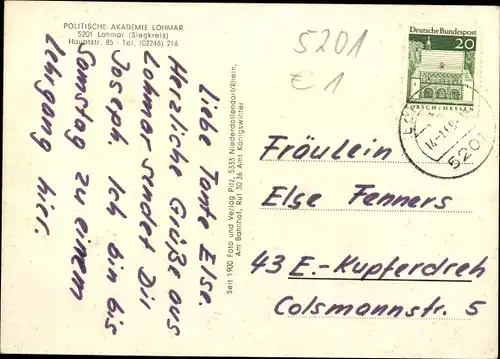 POLITISCHE AKADEMIE LOHMAR
5201 Lohmar (Siegkreis)
Hauptstr. 85 - Tel. (02246) 216
Liebe Tante Else.
Herzliche Grüße aus
Lohmar sendet Dir
Joseph. Ich bin bis
Samstag zu einem
Lehrgang hier.
Seit 1900 Foto und Verlag Pilz, 5333 Niederdollendorf/Rhein,
Am Bahnhof, Ruf 30 36 Amt Königswinter
5201
€ 1
Deutsche Bundespost
20
LORSCH/HESSEN
5201
Fräulein
Else Fenners
43 E.-Kupferdreh
Colsmannstr. 5